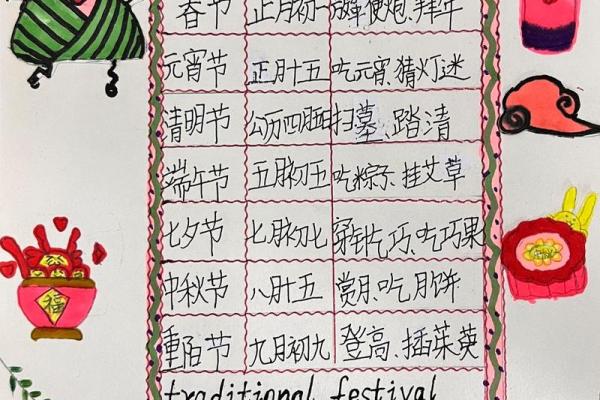 春节 正月初一 放鞭炮、拜年
元宵节 正月十五 吃元宵、猜灯迷
清明节 公历四月 扫墓、踏清
端午节 五月初五 吃粽子、挂艾草
七夕节 七月初七 穿针乞巧、吃巧果
中秋节 八月十五 赏月、吃月饼
重陌节 九月初九 登高、插茱萸
traditional festival
福